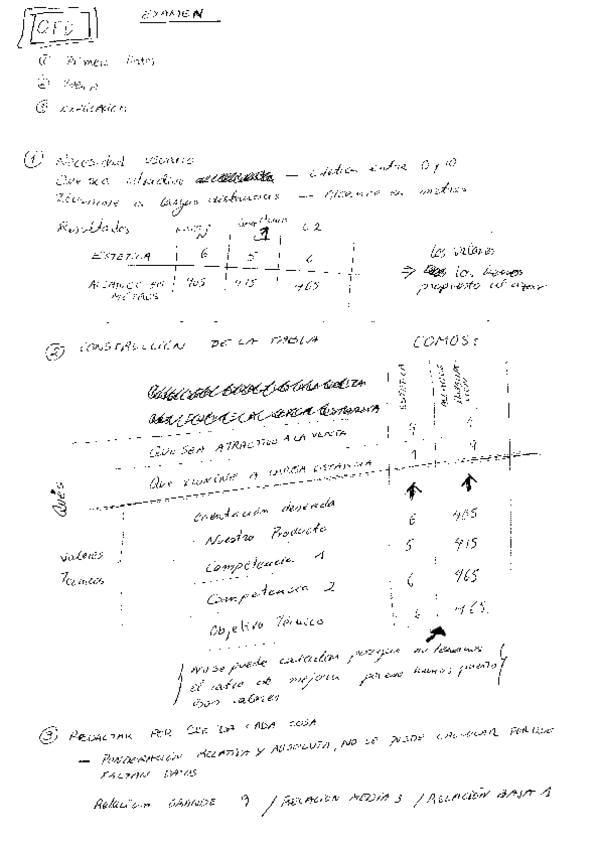 QFD
EXAMEN
① Primeros Datos
② TABLA
③ EXPLICACIÓN
① Necesidad usuario
Que sea atractivo — Estética entre 0 y 10
Ilumine a largas distancias — Alcance en metros
Resultados C2
ESTETICA 6 5 6
ALCANCE EN METROS 405 415 465
los valores
⇒ los hemos
propuesto al azar
② CONSTRUCCIÓN DE LA TABLA
COMOS:
ESTETICA
QUE SEA ATRACTIVO A LA VENTA
QUE ILUMINE A LARGA DISTANCIA 1 9
Qués
Valores
Técnicos
Orientación deseada
Nuestro Producto 6 405
Competencia 1 5 415
Competencia 2 6 465
Objetivo Técnico 6 465
No se puede calcular porque no tenemos
el ratio de mejora por eso hemos puesto
esos valores
③ REDACTAR POR QUE DA CADA COSA
— PONDERACIÓN RELATIVA Y ABSOLUTA, NO SE PUEDE CALCULAR PORQUE
FALTAN DATOS
Relación GRANDE 9 / RELACION MEDIA 3 / RELACIÓN BAJA 1